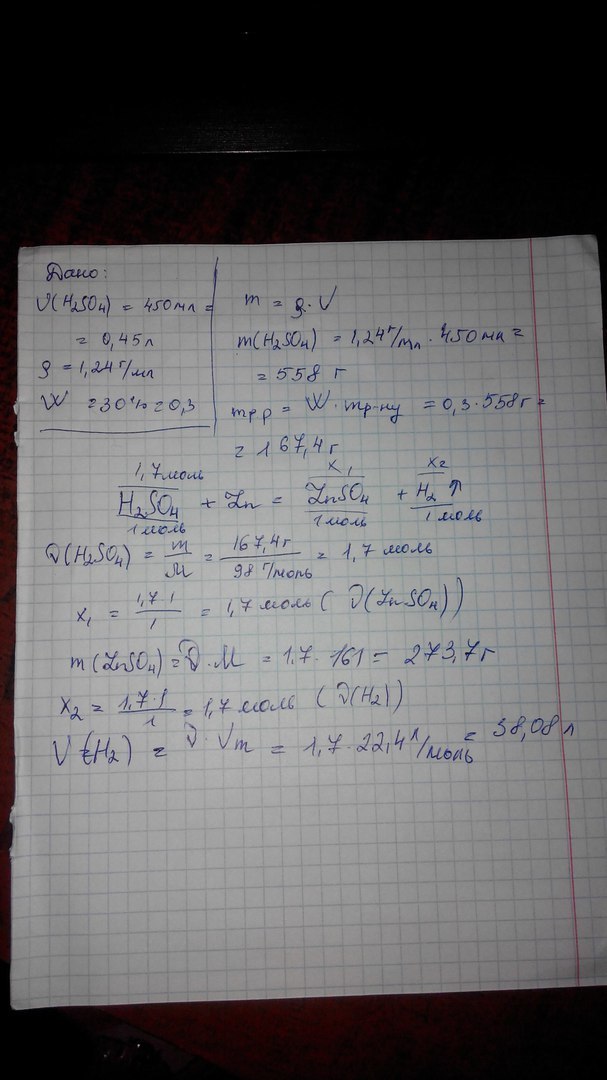 Дано:
V(H2SO4) = 450 мл =
= 0,45 л
ρ = 1,24 г/мл
W = 30% = 0,3
m = ρ·V
m(H2SO4) = 1,24 г/мл · 450 мл =
= 558 г
mрр = W · mр-ну = 0,3 · 558 г =
= 167,4 г
1,7 моль x1 x2
H2SO4 + Zn = ZnSO4 + H2 ↑
1 моль 1 моль 1 моль
ν(H2SO4) = m/M = 167,4 г/98 г/моль = 1,7 моль
x1 = 1,7·1/1 = 1,7 моль (ν(ZnSO4))
m(ZnSO4) = ν·M = 1,7 · 161 = 273,7 г
x2 = 1,7·1/1 = 1,7 моль (ν(H2))
V(H2) = ν·Vm = 1,7 · 22,4 л/моль = 38,08 л